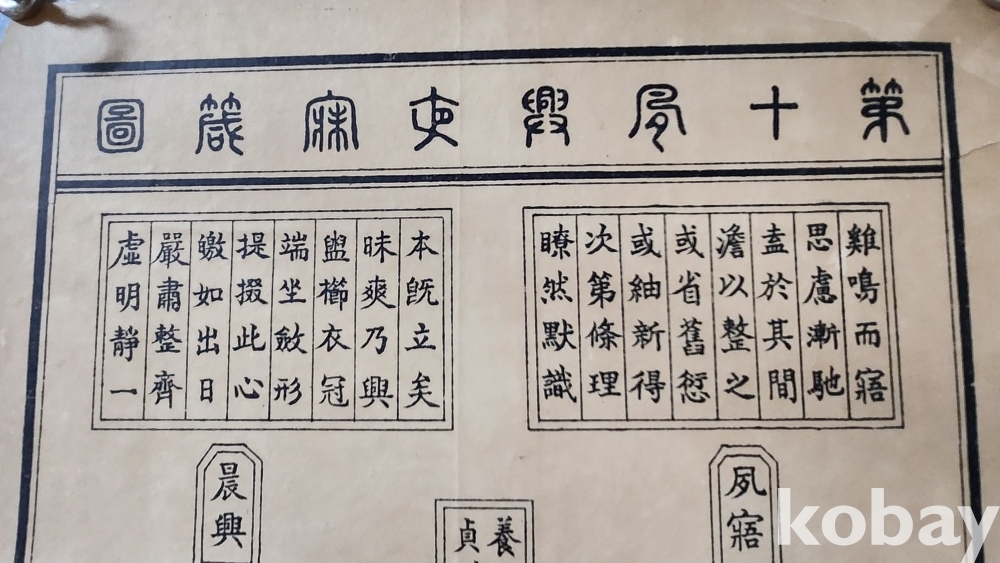 第十夙興夜寐箴圖
雞鳴而寤
思慮漸馳
盍於其間
澹以整之
或省舊愆
或紬新得
次第條理
瞭然默識
本旣立矣
昧爽乃興
盥櫛衣冠
端坐斂形
提掇此心
皦如出日
嚴肅整齊
虛明靜一
夙寤
養
貞
晨興
kobay